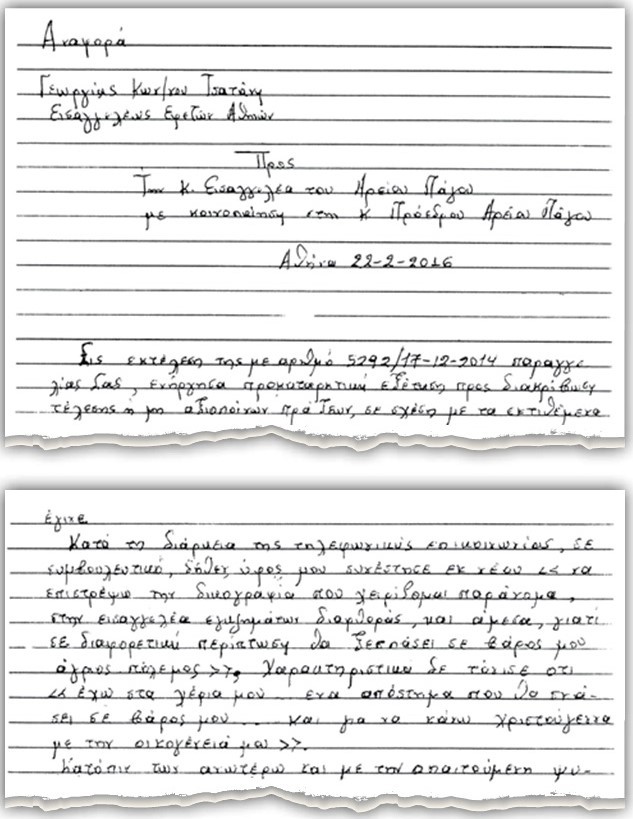 Αναφορά
Γεωργίας Κων/νου Τσατάνη
Εισαγγελέως Εφετών Αθηνών
Προς
Την κ. Εισαγγελέα του Αρείου Πάγου
με κοινοποίηση στη κ Πρόεδρου Αρείου Πάγου
Αθήνα 22-2-2016
Εις εκτέλεση της με αριθμό 5292/17-12-2014 παραγγε
λίας Σας, ενήργησα προκαταρκτική εξέταση προς διακρίβωσιν
τέλεσης η μη αξιοποίνων πράξεων, σε σχέση με τα εκτιθέμενα
έγινε
Κατά τη διάρκεια της τηλεφωνικής επικοινωνίας, σε
συμβουλευτικό, δήθεν, ύφος μου συνέστησε εκ νέου << να
επιστρέψω την δικογραφία που χειρίζομαι παράνομα,
στην εισαγγελέα εγκλημάτων διαφθοράς, και άμεσα, γιατί
σε διαφορετική περίπτωση θα ξεσπάσει σε βάρος μου
άγριος πόλεμος >>, Χαρακτηριστικά δε τόνισε ότι
<< έχω στα χέρια μου ... ένα απόστημα που θα σπά-
σει σε βάρος μου ... και για να κάνω Χριστούγεννα
με την οικογένειά μου >>.
Κατόπιν των ανωτέρω και με την απαιτούμενη ψυ-